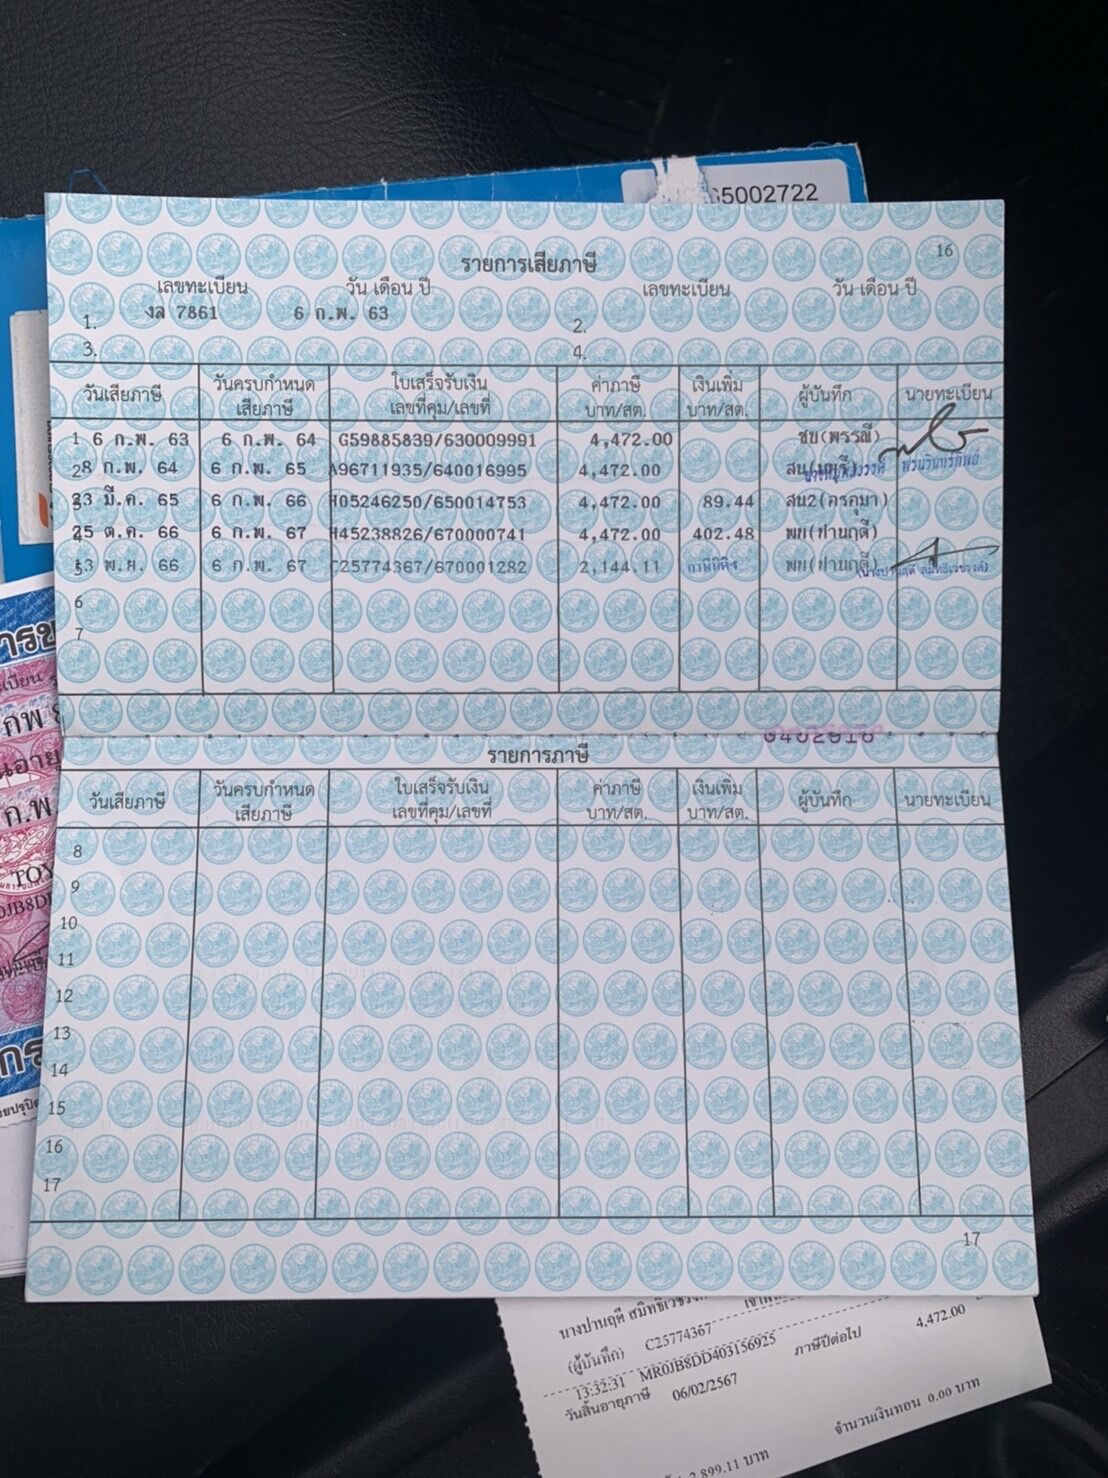 5002722
16
รายการเสียภาษี
เลขทะเบียน วัน เดือน ปี เลขทะเบียน วัน เดือน ปี
1. งล 7861 6 ก.พ. 63 2.
3. 4.
วันเสียภาษี วันครบกำหนดเสียภาษี ใบเสร็จรับเงิน เลขที่คุม/เลขที่ ค่าภาษี บาท/สต. เงินเพิ่ม บาท/สต. ผู้บันทึก นายทะเบียน
1 6 ก.พ. 63 6 ก.พ. 64 G59885839/630009991 4,472.00 ชบ(พรรณี)
28 ก.พ. 64 6 ก.พ. 65 A96711935/640016995 4,472.00
23 มี.ค. 65 6 ก.พ. 66 H05246250/650014753 4,472.00 89.44 สน2(กรคุมา)
25 ต.ค. 66 6 ก.พ. 67 H45238826/670000741 4,472.00 402.48 พบ(ปานฤดี)
13 พ.ย. 66 6 ก.พ. 67 C25774367/670001282 2,144.11 พบ(ปานฤดี)
6
7
รายการภาษี
วันเสียภาษี วันครบกำหนดเสียภาษี ใบเสร็จรับเงิน เลขที่คุม/เลขที่ ค่าภาษี บาท/สต. เงินเพิ่ม บาท/สต. ผู้บันทึก นายทะเบียน
8
9
10
11
12
13
14
15
16
17
17
นางปานฤดี
(ผู้บันทึก) C25774367
13:32:31 MR0JB8DD403156925 ภาษีปีต่อไป 4,472.00
วันสิ้นอายุภาษี 06/02/2567
จำนวนเงินทอน 0.00 บาท
2,899.11 บาท